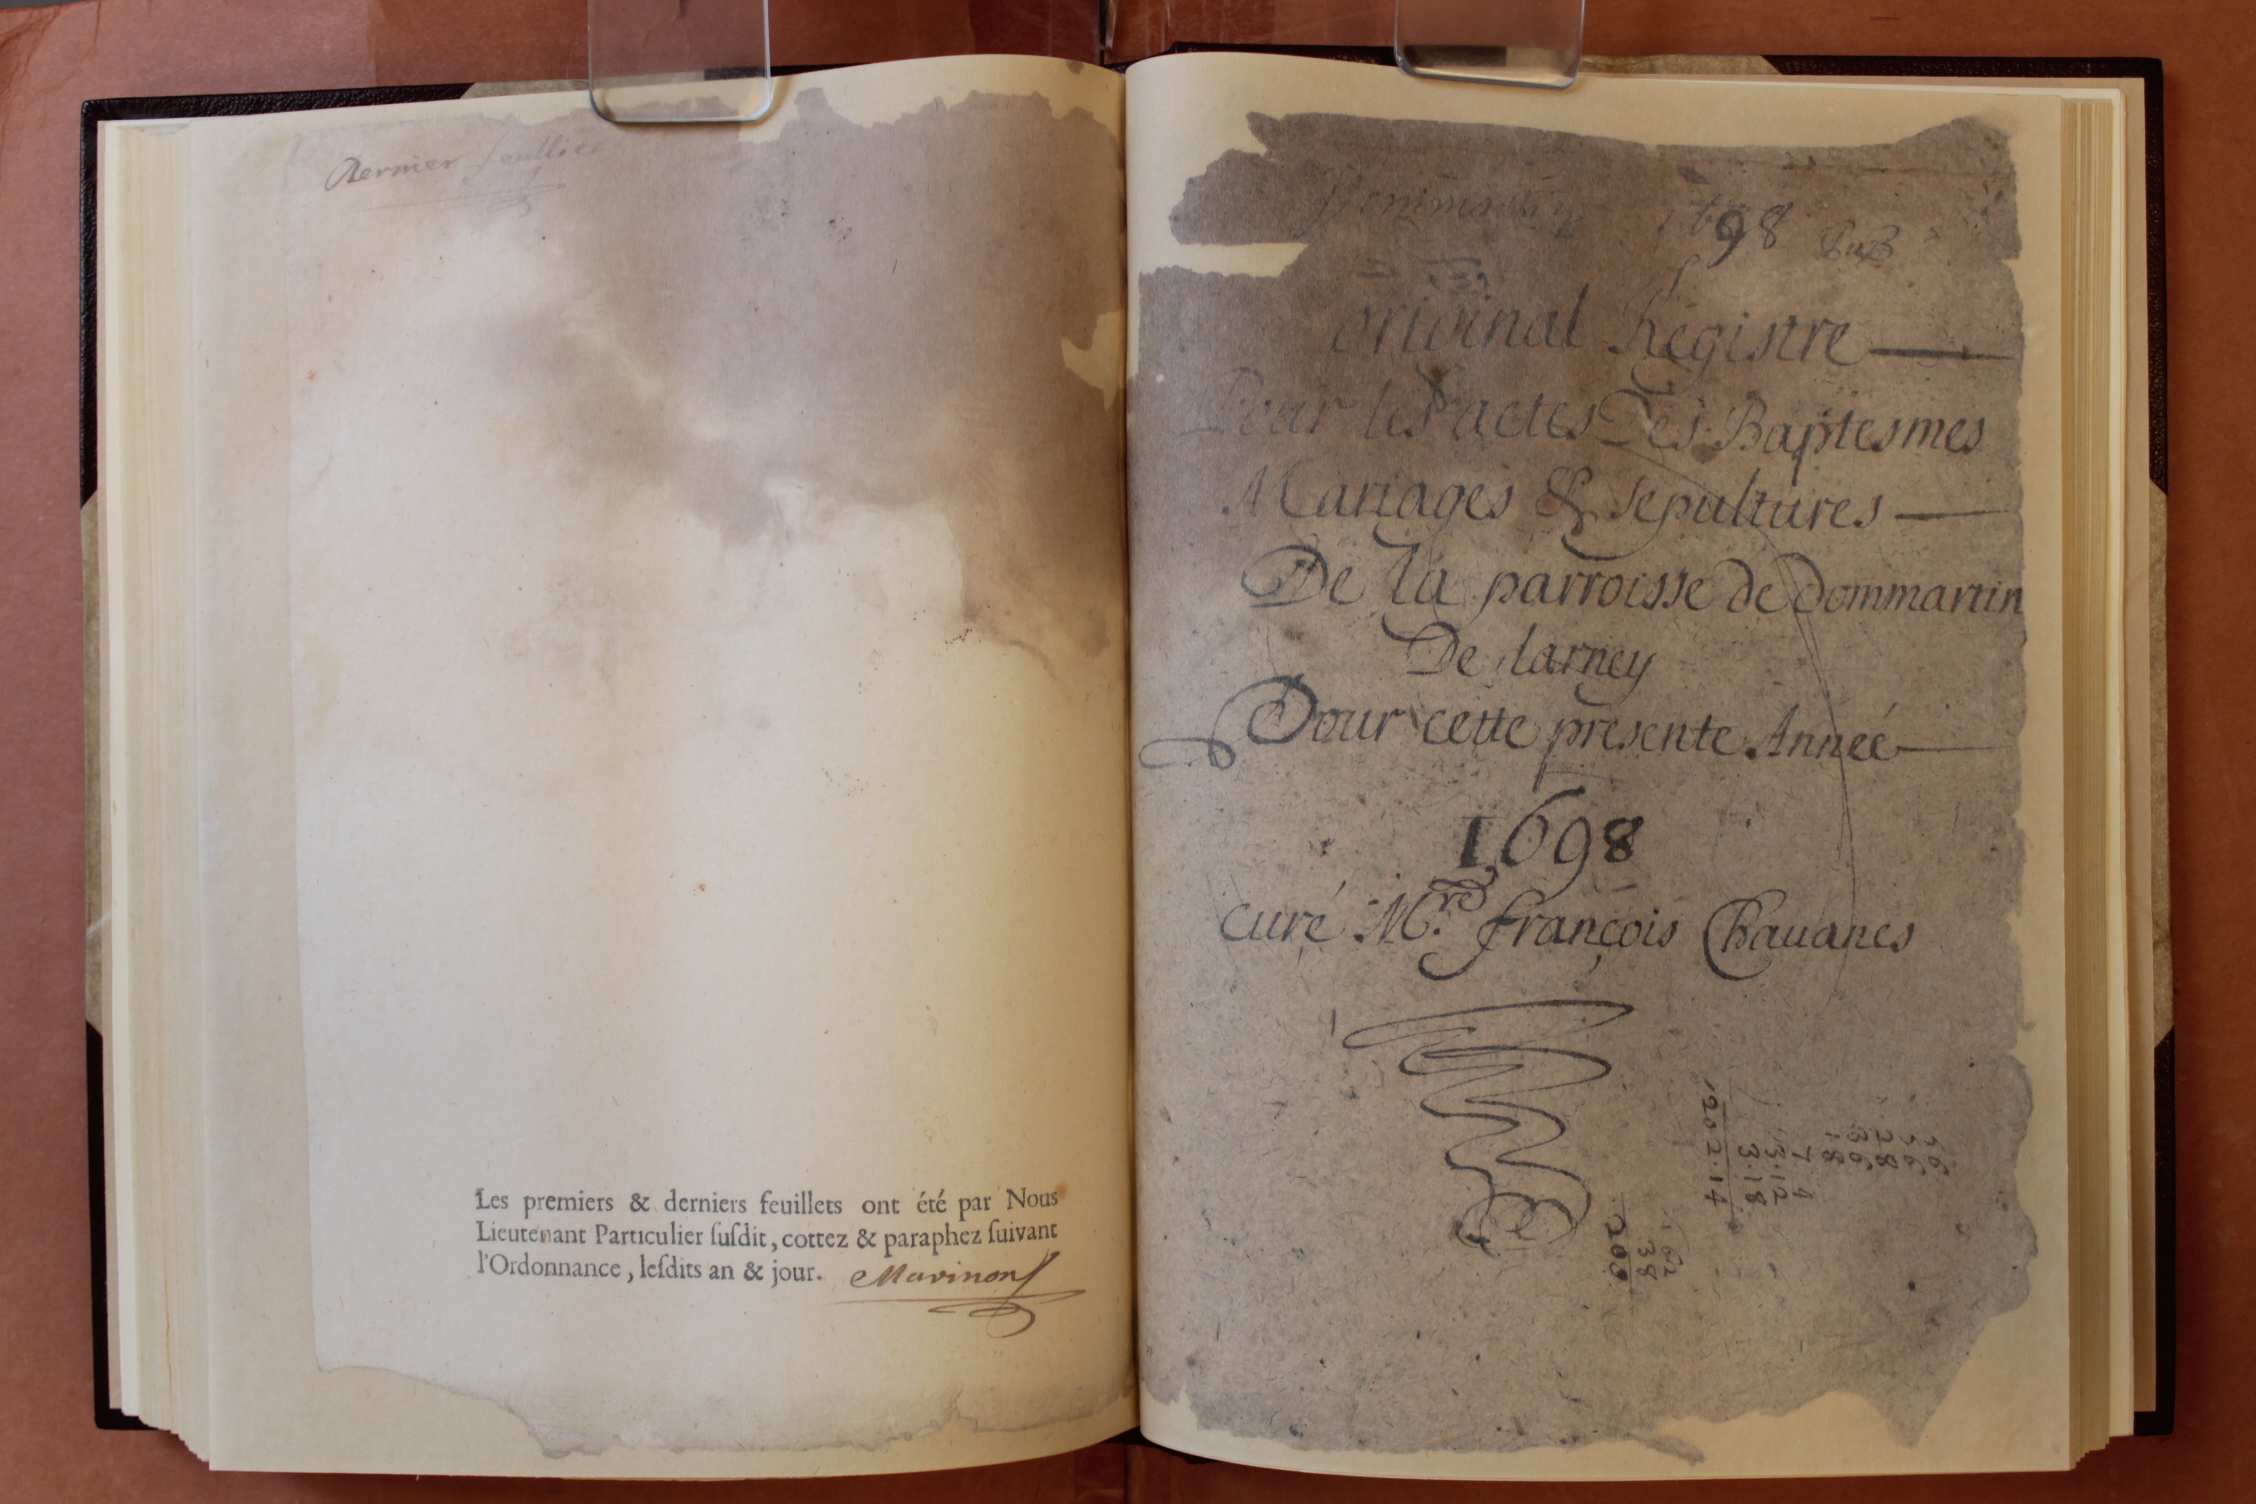 Dernier feuillet
Les premiers & derniers feuillets ont été par Nous
Lieutenant Particulier ſuſdit, cottez & paraphez ſuivant
l'Ordonnance, leſdits an & jour. Mavinon
1698
original Registre
Pour les actes Des Baptesmes
Mariages & sepultures
De la parroisse de dommartin
De larney
Pour cette presente Année
1698
curé M.re françois Chauanes
202.14
3.18
13.12
200
38
162